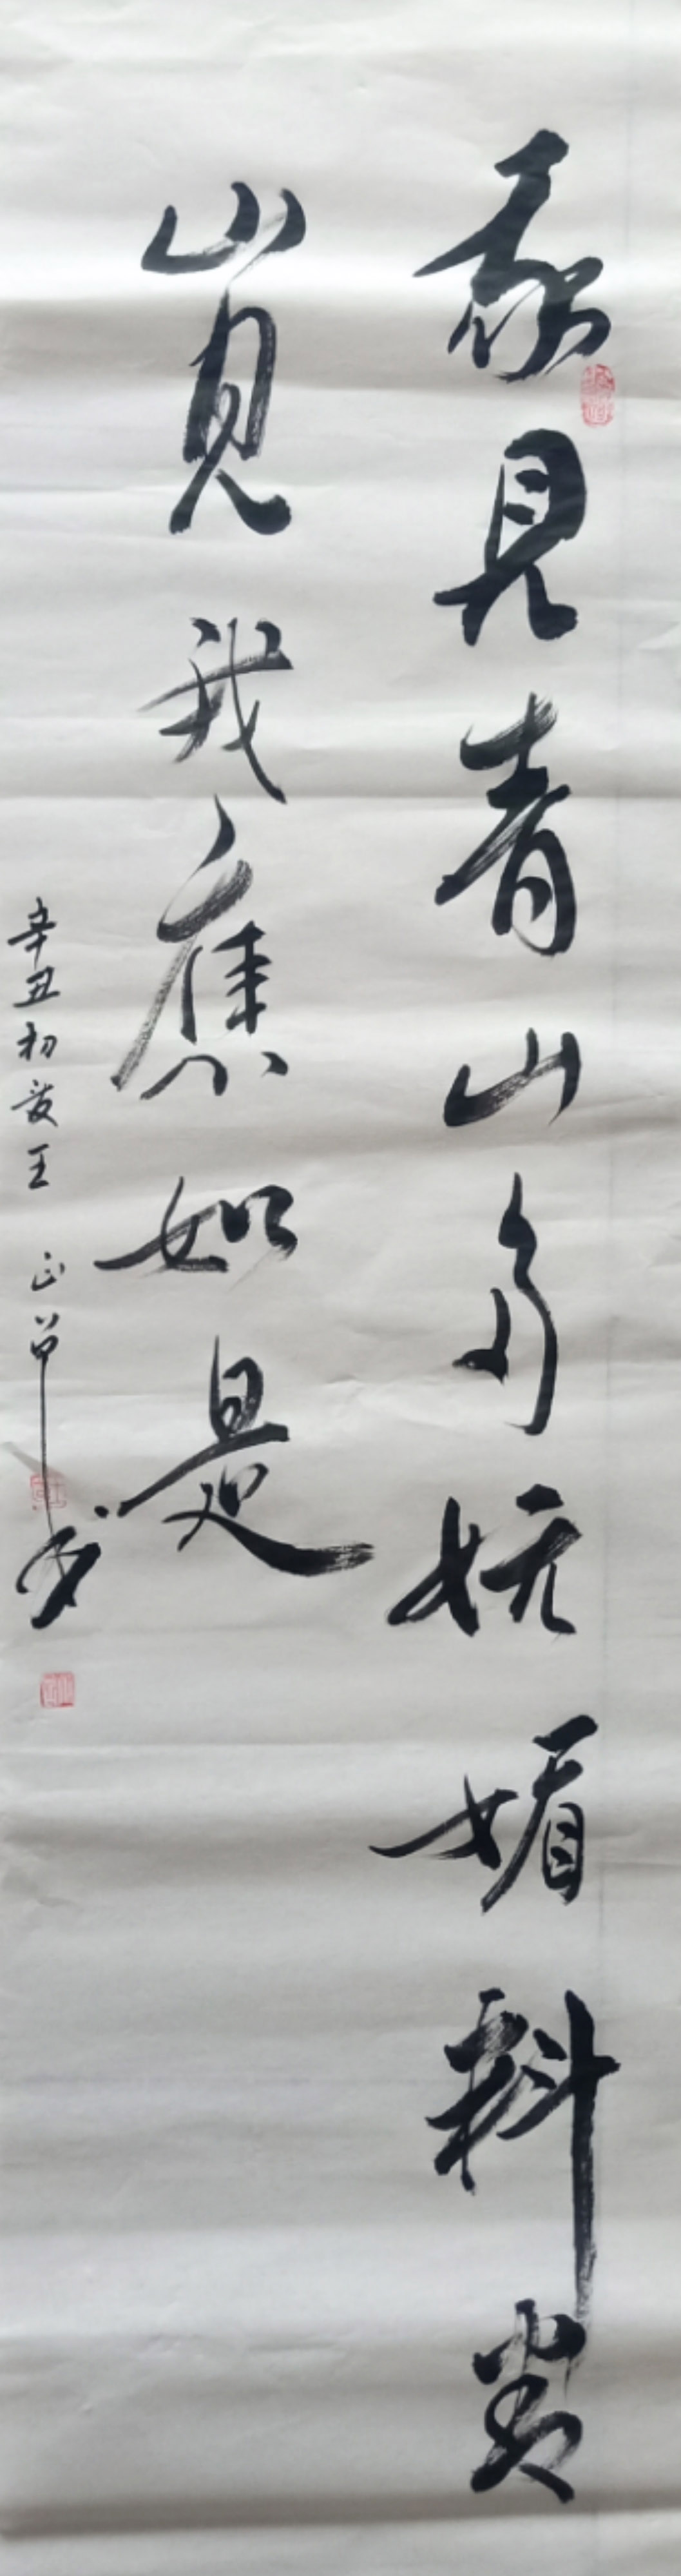 我見青山多妩媚料青
山見我應如是
辛丑初夏王正